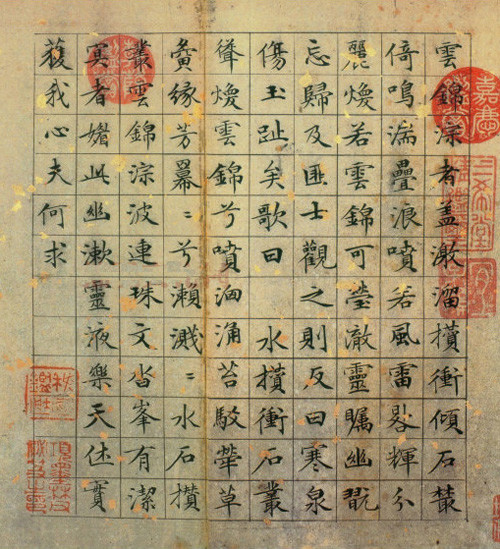 雲錦淙者盖激溜攢衝傾石藂
倚鳴湍疊浪噴若風雷畧輝分
麗煥若雲錦可瑩澈靈矚幽翫
忘歸及匪士觀之則反曰寒泉
傷玉趾矣歌曰 水攢衝石叢
聳煥雲錦兮噴洶涌苔駮犖草
夤緣芳羃〻兮瀨濺〻水石攢
叢雲錦淙波連珠文沓峯有潔
冥者媚此幽漱靈液樂天休實
蒦我心夫何求